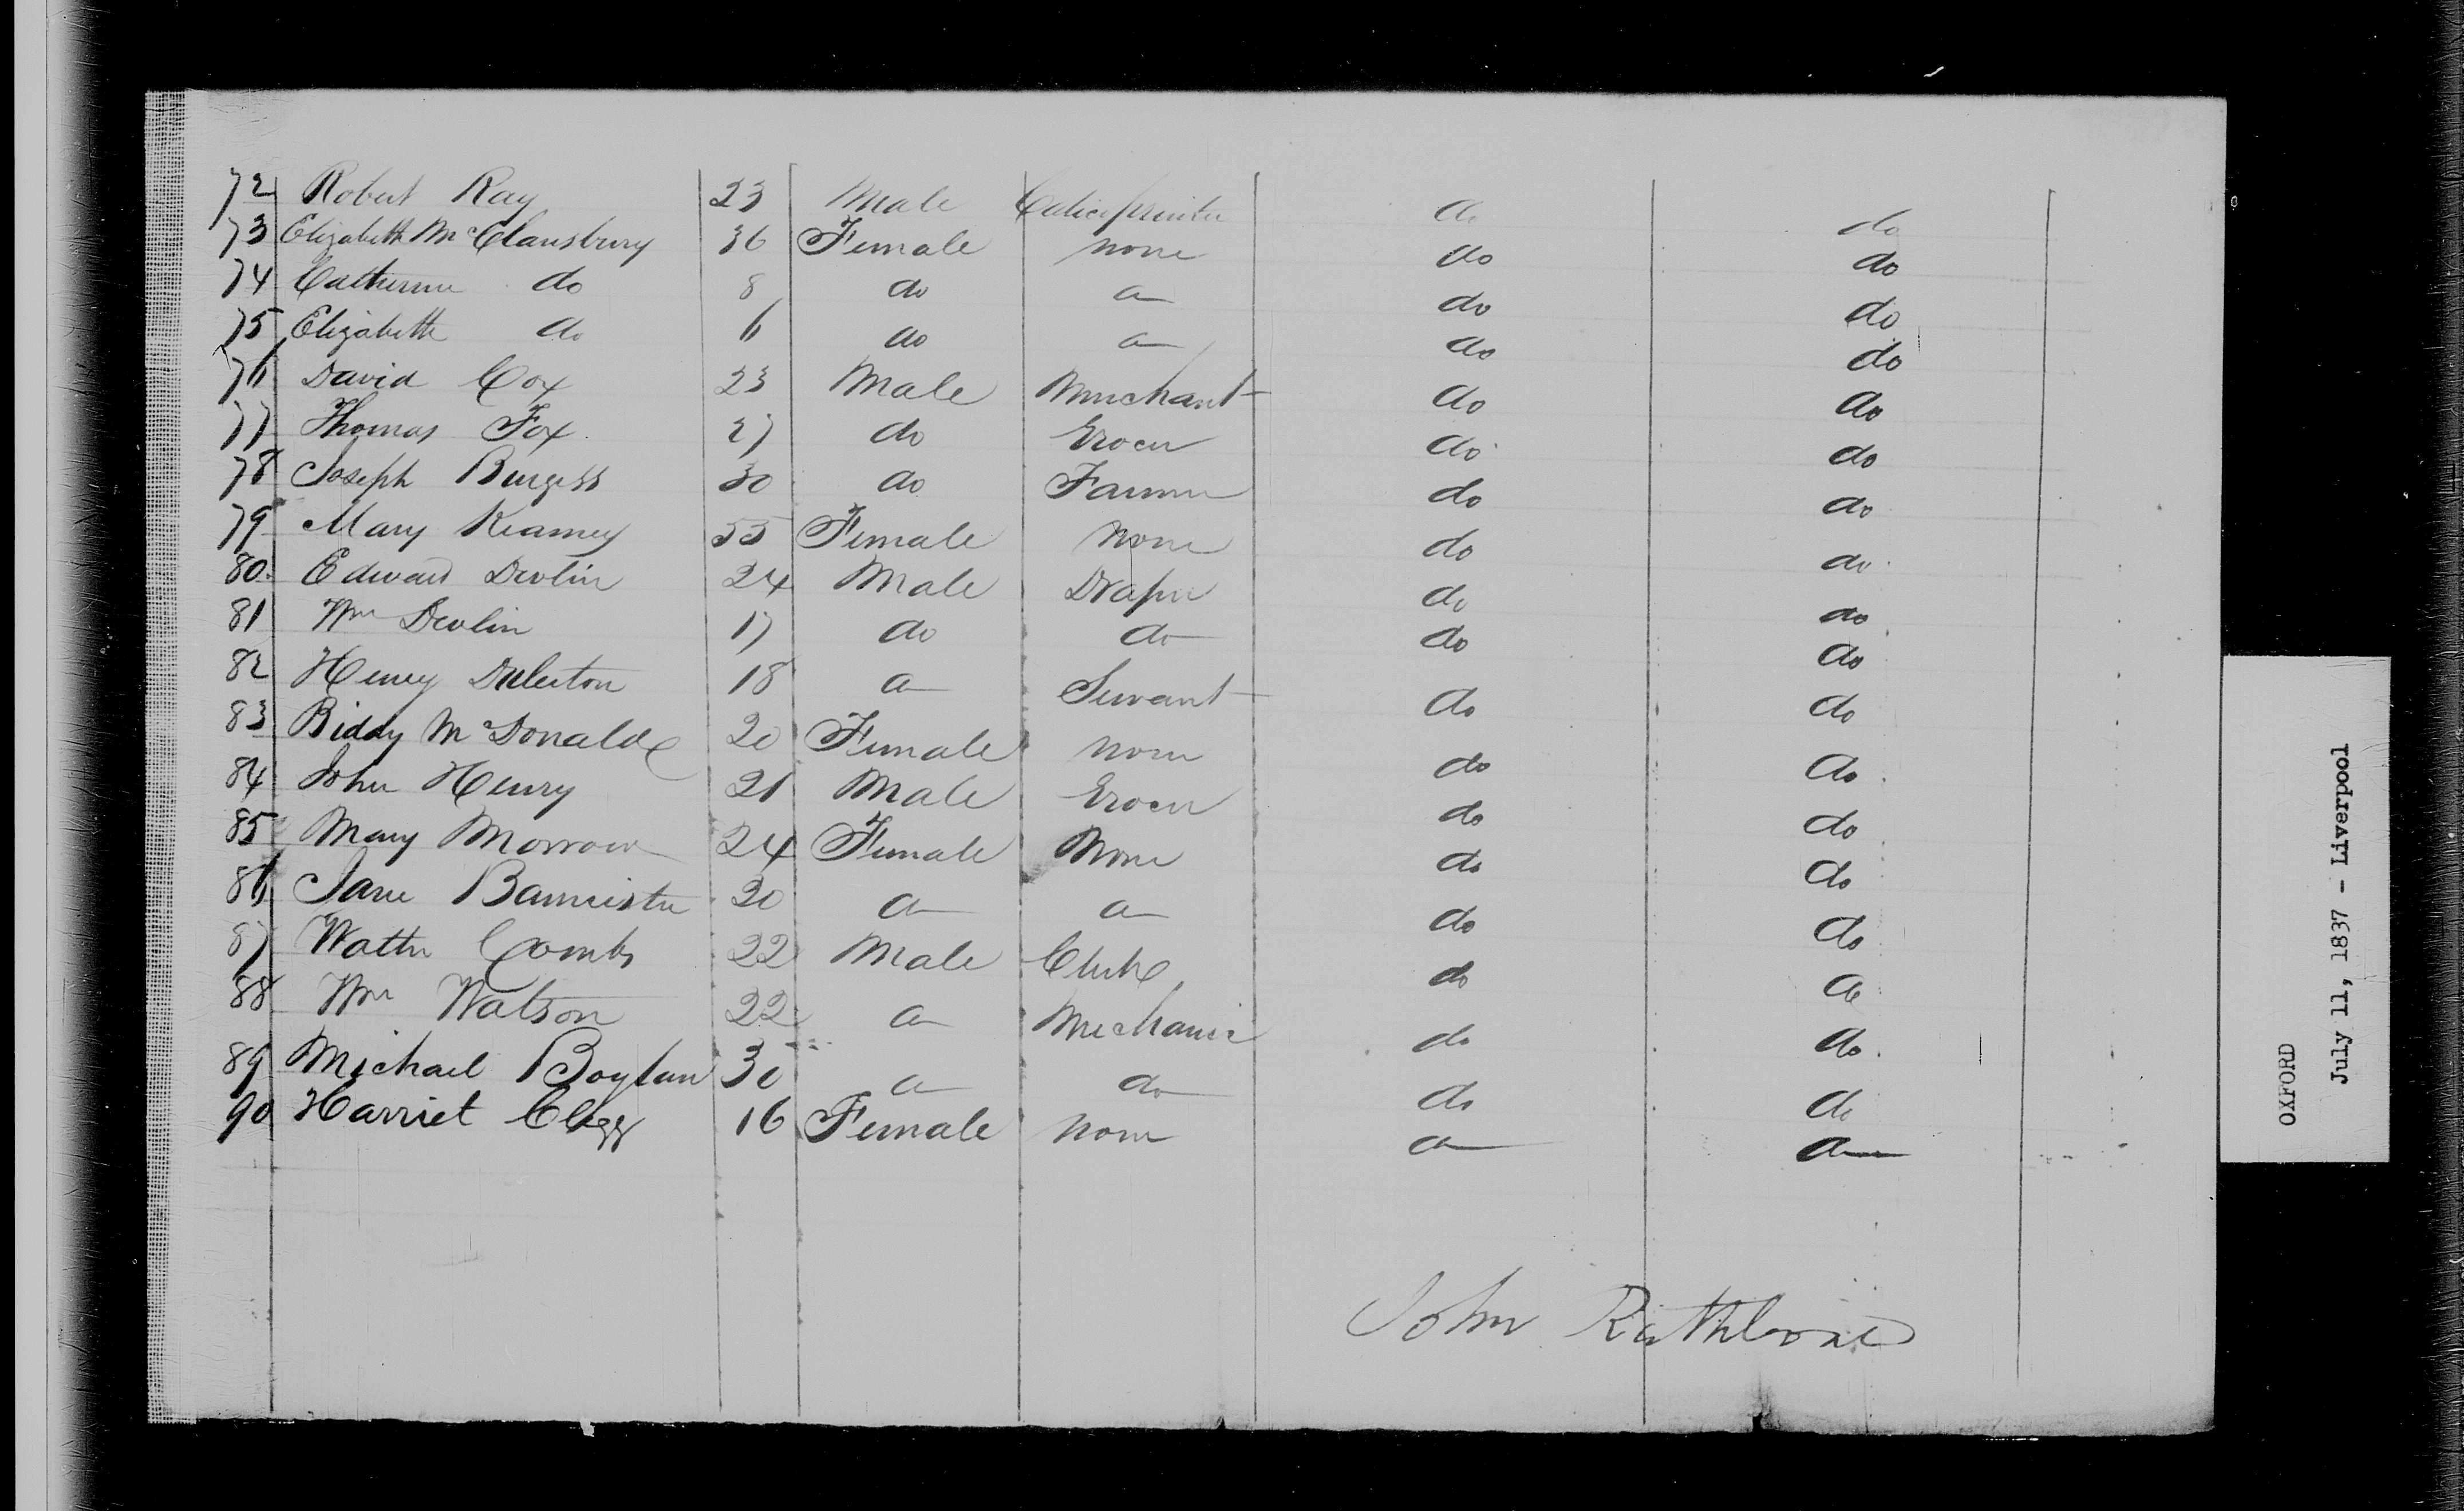 72 Robert Ray 23 Male Calico printer do do
73 Elizabeth McClansbury 36 Female none do do
74 Catherine do 8 do do do do
75 Elizabeth do 6 do do do do
76 David Cox 23 Male Merchant do do
77 Thomas Fox 27 do Grocer do do
78 Joseph Burgess 30 do Farmer do do
79 Mary Kearney 55 Female none do do
80 Edward Devlin 24 Male Draper do do
81 Wm Devlin 17 do do do do
82 Henry 18 do Servant do do
83 Biddy McDonald 20 Female none do do
84 John Henry 21 Male Grocer do do
85 Mary Morrow 24 Female None do do
86 Jane Bannister 20 do do do do
87 Walter Combs 22 Male Clerk do do
88 Wm Watson 22 do Mechanic do do
89 Michael Boylan 30 do do do do
90 Harriet Clegg 16 Female none do do
John Rathbone
OXFORD
July 11, 1837 - Liverpool